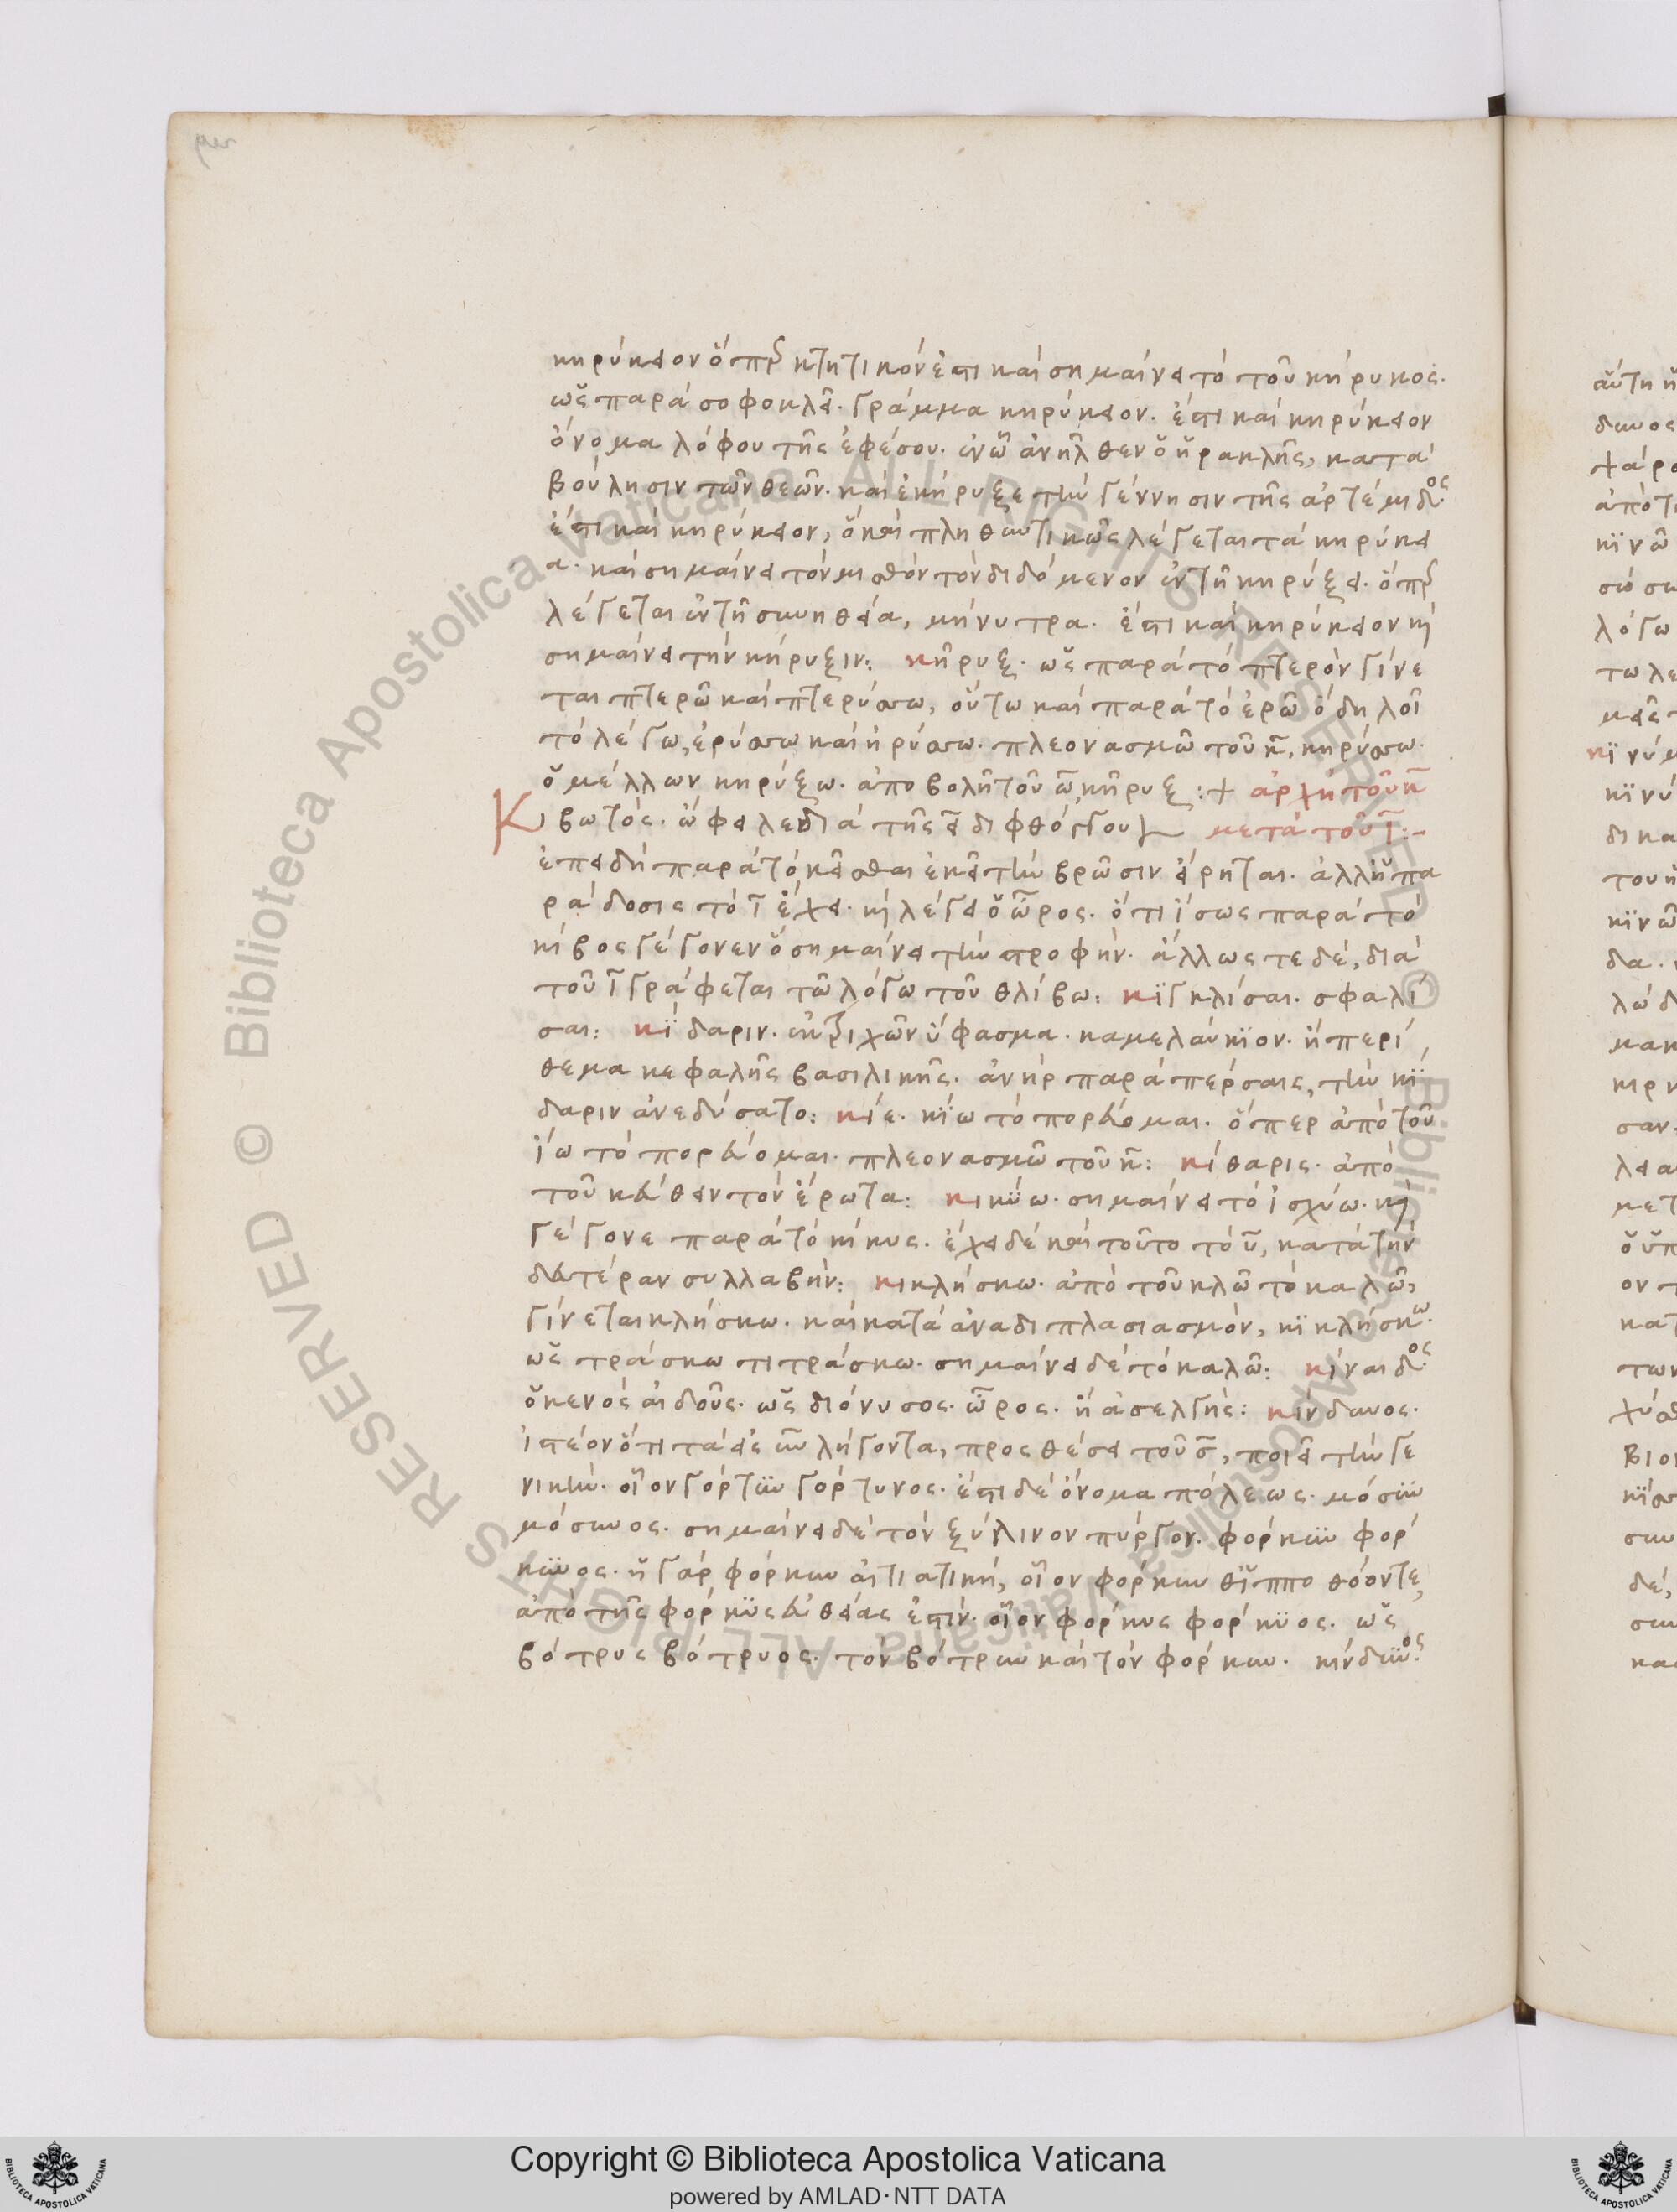 κηρύκειον ὅπερ κτητικόν ἐστι καὶ σημαίνει τὸ τοῦ κήρυκος.
ὡς παρὰ σοφοκλεῖ. γράμμα κηρύκειον. ἔστι καὶ κηρύκειον
ὄνομα λόφου τῆς ἐφέσου. ἐν ᾧ ἀνῆλθεν ὁ ἡρακλῆς, κατὰ
βούλησιν τῶν θεῶν. καὶ ἐκήρυξε τὴν γέννησιν τῆς ἀρτέμιδος.
ἔστι καὶ κηρύκειον, ὃ καὶ πληθυντικῶς λέγεται τὰ κηρύκει
α. καὶ σημαίνει τὸν μισθὸν τὸν διδόμενον ἐν τῇ κηρύξει. ὅπερ
λέγεται ἐν τῇ συνηθεία, μήνυτρα. ἔστι καὶ κηρύκειον καὶ
σημαίνει τὴν κήρυξιν: κῆρυξ. ὡς παρὰ τὸ πτερὸν γίνε
ται πτερῶ καὶ πτερύσσω, οὕτω καὶ παρὰ τὸ ἐρῶ ὃ δηλοῖ
τὸ λέγω, ἐρύσσω καὶ ἠρύσσω. πλεονασμῶ τοῦ κ, κηρύσσω.
ὁ μέλλων κηρύξω. ἀποβολῇ τοῦ ω, κῆρυξ :+ ἀρχὴ τοῦ κ
Κιβωτός. ὤφειλε διὰ τῆς ει διφθόγγου μετὰ τοῦ ι:-
ἐπειδὴ παρὰ τὸ κεῖσθαι ἐκεῖ τὴν βρῶσιν εἴρηται. ἀλλ' ἡ πα
ράδοσις τὸ ι ἔχει. καὶ λέγει ὁ ὦρος. ὅτι ἴσως παρὰ τὸ
κίβος γέγονεν ὃ σημαίνει τὴν τροφήν. ἄλλως τε δὲ, διὰ
τοῦ ι γράφεται τῶ λόγω τοῦ θλίβω: κϊγκλίσαι. σφαλί
σαι: κϊδαριν. ἐκ τριχῶν ὕφασμα. καμελαύκϊον. ἢ περί
θεμα κεφαλῆς βασιλικῆς. ἀνὴρ παρὰ πέρσαις, τὴν κϊ
δαριν ἀνεδύσατο: κίε. κΐω τὸ πορεύομαι. ὅπερ ἀπὸ τοῦ
ἴω τὸ πορεύομαι. πλεονασμῶ τοῦ κ: κίθαρις. ἀπὸ
τοῦ κεύθειν τὸν ἔρωτα: κικϋω. σημαίνει τὸ ἰσχύω. καὶ
γέγονε παρὰ τὸ κίκυς. ἔχει δὲ καὶ τοῦτο τὸ υ, κατὰ τὴν
δευτέραν συλλαβήν: κικλήσκω. ἀπὸ τοῦ κλῶ τὸ καλῶ,
γίνεται κλήσκω. καὶ κατὰ ἀναδιπλασιασμὸν, κϊκλήσκω.
ὡς τράσκω τιτράσκω. σημαίνει δὲ τὸ καλῶ: κίναιδος.
ὁ κενὸς αἰδοῦς. ὡς διόνυσος. ὦρος. ἢ ἀσελγής: κίνδυνος.
ἰστέον ὅτι τὰ εἰς υν λήγοντα, προσθέσει τοῦ σ, ποιεῖ τὴν γε
νικήν. οἷον γόρτϋν γόρτυνος. ἔστι δὲ ὄνομα πόλεως. μόσϋν
μόσυνος. σημαίνει δὲ τὸν ξύλινον πύργον. φόρκϋν φόρ
κϋνος. ἡ γὰρ φόρκυν αἰτιατικὴ, οἷον φόρκυν θ' ἱπποθόοντε,
ἀπὸ τῆς φόρκϋς εὐθείας ἐστίν. οἷον φόρκυς φόρκϋος. ὡς
βότρυς βότρυος. τὸν βότρυν καὶ τὸν φόρκυν. κίνδϋνος.